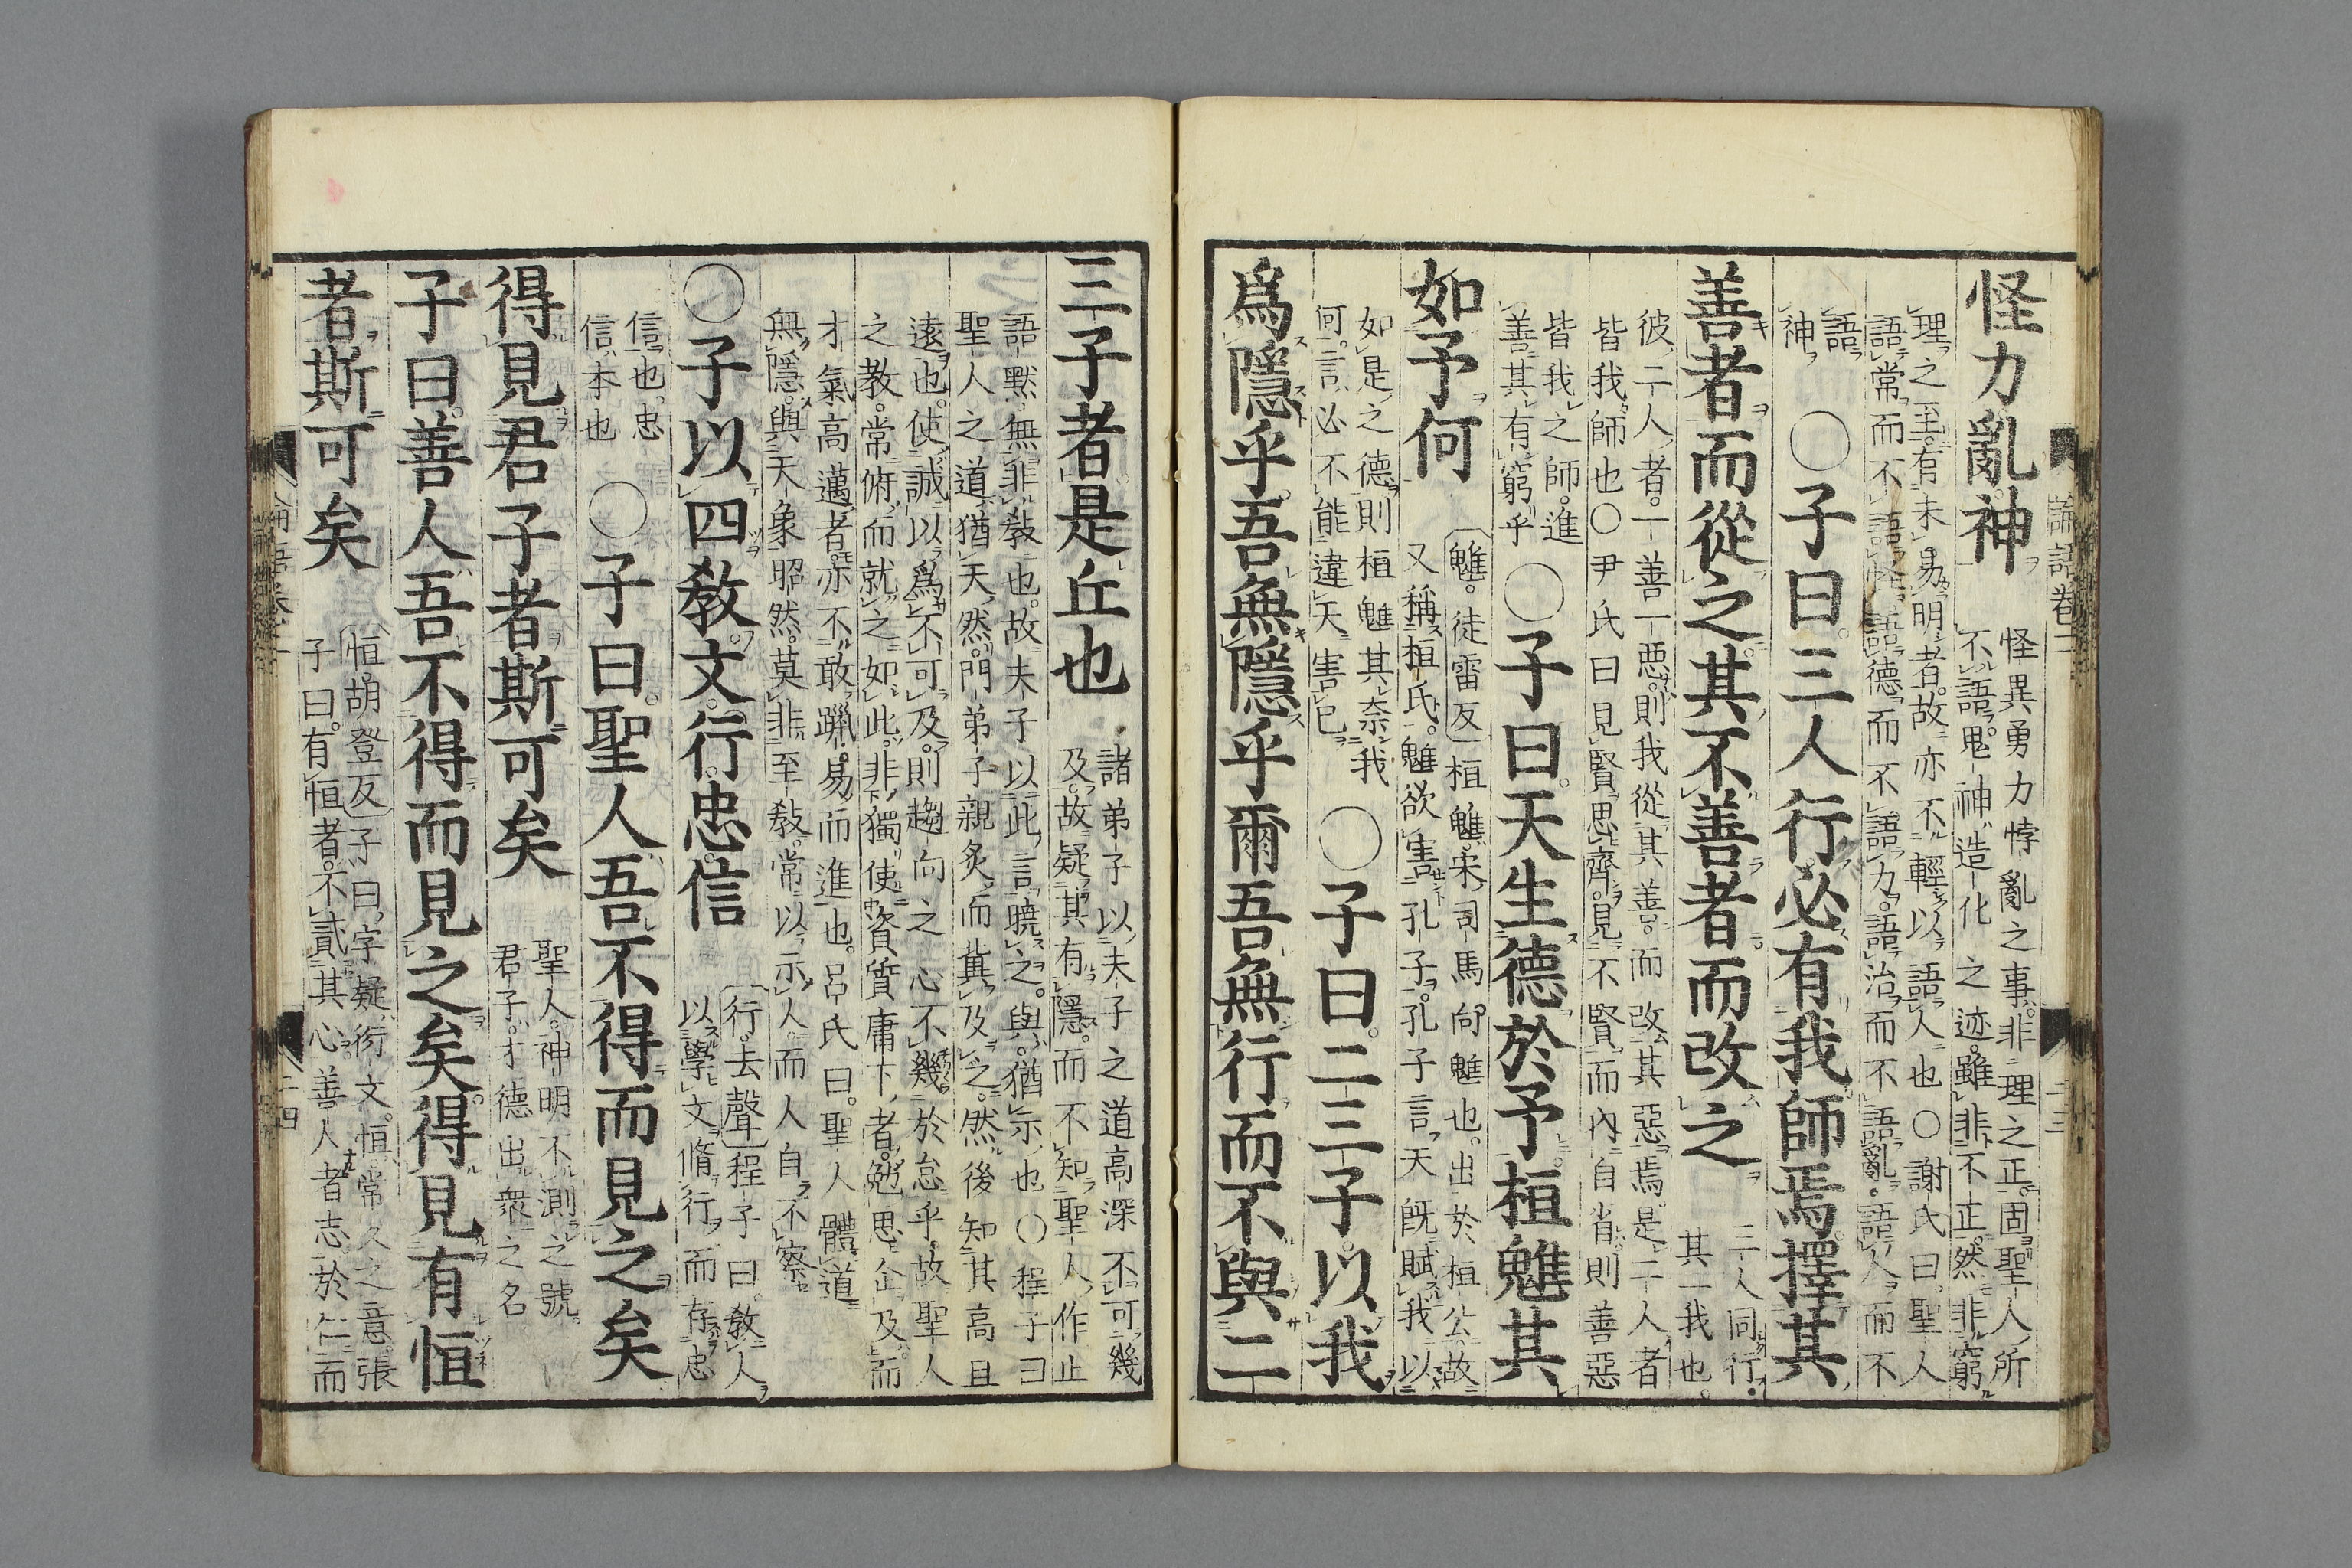 怪力亂神
怪異勇力悖亂之事非理之正固聖人所
不語鬼神造化之迹雖非不正然非窮
理之至有未易明者故亦不輕以語人也○謝氏曰聖人
語常而不語怪語德而不語力語治而不語亂語人而不
語
神
○子曰三人行必有我師焉擇其
善者而從之其不善者而改之
三人同行
其一我也
彼二人者一善一惡則我從其善而改其惡焉是二人者
皆我師也○尹氏曰見賢思齊見不賢而內自省則善惡
皆我之師進
善其有窮乎
○子曰天生德於予桓魋其
如予何
魋徒雷反桓魋宋司馬向魋也出於桓公故
又稱桓氏魋欲害孔子孔子言天既賦我以
如是之德則桓魋其奈我
何言必不能違天害已
○子曰二三子以我
爲隱乎吾無隱乎爾吾無行而不與二
論語卷二
三子者是丘也
諸弟子以夫子之道高深不可幾
及故疑其有隱而不知聖人作止
語默無非敎也故夫子以此言曉之與猶示也○程子曰
聖人之道猶天然門弟子親炙而冀及之然後知其高且
遠也使誠以爲不可及則趨向之心不幾於怠乎故聖人
之教常俯而就之如此非獨使資質庸下者勉思企及而
才氣高邁者亦不敢躐易而進也呂氏曰聖人體道
無隱與天象昭然莫非至敎常以示人而人自不察
○子以四敎文行忠信
行去聲程子曰敎人
以學文脩行而存忠
信也忠
信本也
○子曰聖人吾不得而見之矣
得見君子者斯可矣
聖人神明不測之號
君子才德出衆之名
子曰善人吾不得而見之矣得見有恒
者斯可矣
恒胡登反子曰字疑衍文恒常久之意張
子曰有恒者不貳其心善人者志於仁而
二四